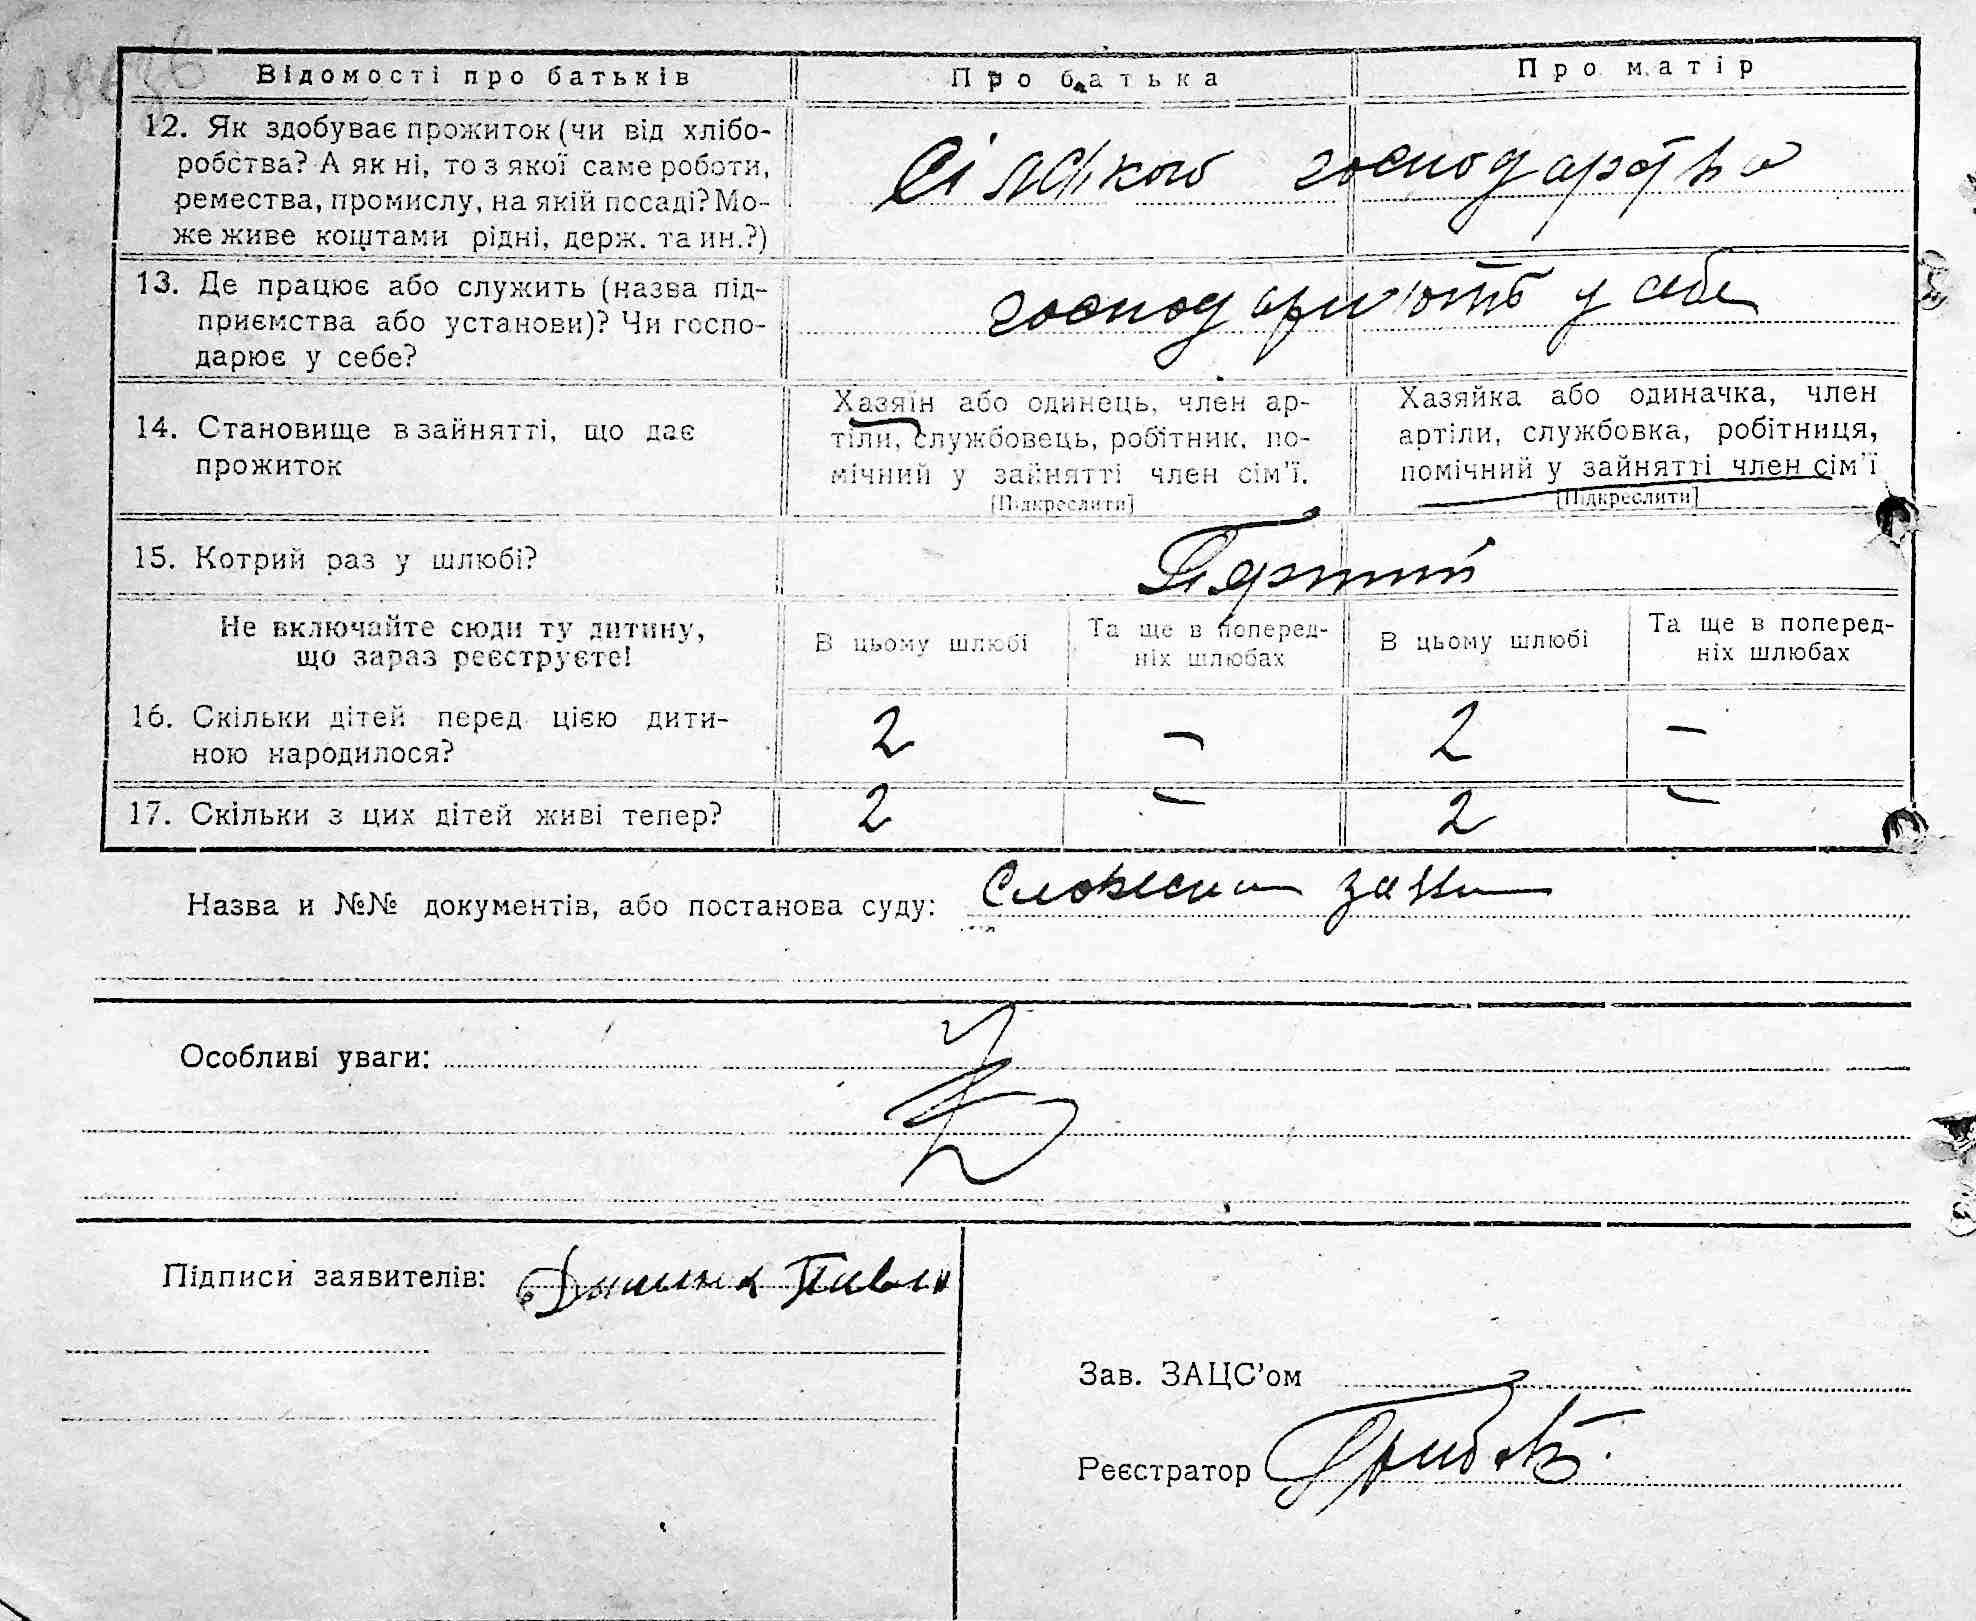 Відомості про батьків
Про батька
Про матір
12. Як здобуває прожиток (чи від хлібо-
робства? А як ні, то з якої саме роботи,
ремества, промислу, на якій пссаді? Мо-
же живе коштами рідні, держ. та ин.?)
Сільського господарства
13. Де працює або служить (назва під-
приємства або установи)? Чи госпо-
дарює у себе?
господарюють у себе
14. Становище в зайнятті, що дає
прожиток
Хазяїн або одинець, член ар-
тіли, службовець, робітник, по-
мічний у зайнятті член сім'ї.
[Підкреслити]
Хазяйка або одиначка, член
артіли, службовка, робітниця,
помічний у зайнятті член сім'ї
[Підкреслити]
15. Котрий раз у шлюбі?
Перший
Не включайте сюди ту дитину,
що зараз реєструєте!
В цьому шлюбі
Та ще в поперед-
ніх шлюбах
В цьому шлюбі
Та ще в поперед-
ніх шлюбах
16. Скільки дітей перед цією дити-
ною народилося?
2 – 2 –
17. Скільки з цих дітей живі тепер?
2 – 2 –
Назва и №№ документів, або постанова суду: Словесна заява
Особливі уваги:
Підписи заявителів: Павло
Зав. ЗАЦС'ом
Реєстратор